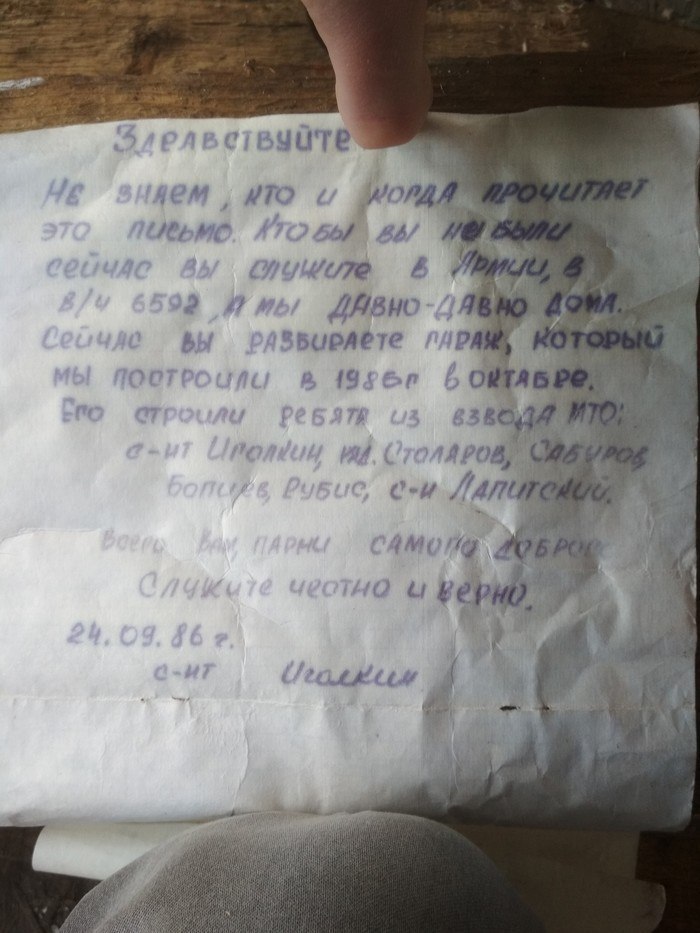 Здравствуйте
Не знаем, кто и когда прочитает
это письмо. Кто бы вы не были
сейчас вы служите в Армии, в
в/ч 6592, а мы давно-давно дома.
Сейчас вы разбираете гараж, который
мы построили в 1986г в октябре.
Его строили ребята из взвода МТО:
с-нт Иголкин, мл. Столаров, Сабуров,
Рубис, с-н Лапитский.
Всего вам, парни самого доброго
Служите честно и верно.
24.09.86 г.
с-нт Иголкин